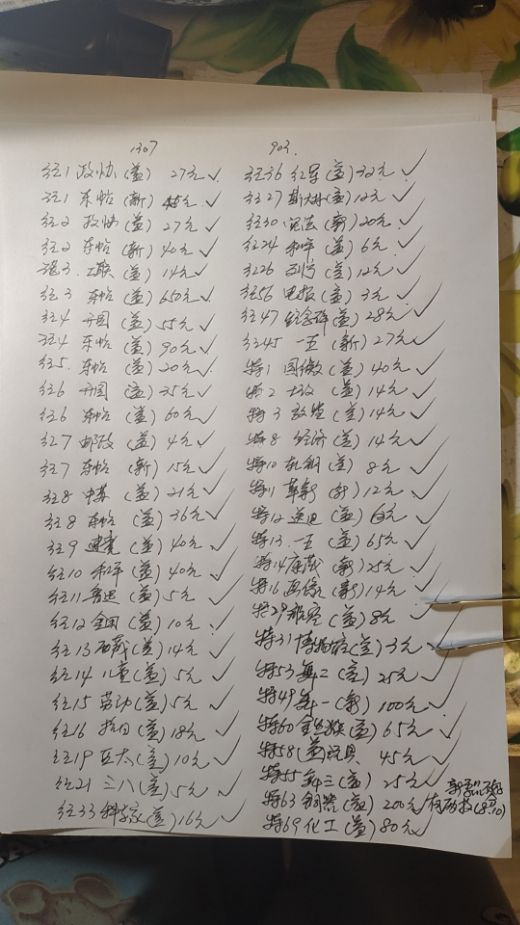 1307
纪1 政协(盖) 27元 ✓
纪1 东帖(新) 45元 ✓
纪2 政协(盖) 27元 ✓
纪2 东帖(新) 40元 ✓
纪3 工联(盖) 14元 ✓
纪3 东帖(盖) 650元 ✓
纪4 开国(盖) 55元 ✓
纪4 东帖(盖) 90元 ✓
纪5 东帖(盖) 20元 ✓
纪6 开国(盖) 35元 ✓
纪6 东帖(盖) 60元 ✓
纪7 邮政(盖) 4元 ✓
纪7 东帖(新) 15元 ✓
纪8 中苏(盖) 21元 ✓
纪8 东帖(盖) 36元 ✓
纪9 建党(盖) 40元 ✓
纪10 和平(盖) 40元 ✓
纪11 鲁迅(盖) 5元 ✓
纪12 金田(盖) 10元 ✓
纪13 西藏(盖) 14元 ✓
纪14 儿童(盖) 5元 ✓
纪15 劳动(盖) 5元 ✓
纪16 抗日(盖) 18元 ✓
纪19 亚太(盖) 10元 ✓
纪21 三八(盖) 5元 ✓
纪33 科学家(盖) 16元 ✓
903
纪36 红军(盖) 32元 ✓
纪27 斯大林(盖) 12元 ✓
纪30 宪法(新) 20元 ✓
纪24 和平(盖) 6元 ✓
纪26 列宁(盖) 12元 ✓
纪56 电报(盖) 3元 ✓
纪47 纪念碑(盖) 28元 ✓
纪45 一五(新) 27元 ✓
特1 国徽(盖) 40元 ✓
特2 土改(盖) 14元 ✓
特3 敦煌(盖) 14元 ✓
特8 经济(盖) 14元 ✓
特10 轧钢(盖) 8元 ✓
特11 革新(新) 12元 ✓
特12 递迅(盖) 6元 ✓
特13 一五(盖) 65元 ✓
特14 康藏(新) 25元 ✓
特16 画像(新) 14元 ✓
特29 航空(盖) 8元 ✓
特31 博物馆(盖) 3元 ✓
特53 舞二(盖) 25元 ✓
特49 舞一(新) 100元 ✓
特60 金丝猴(盖) 65元 ✓
特58(盖) 玩具 45元 ✓
特55 舞三(盖) 25元 ✓
特63 铜器(盖) 200元 ✓
特69 化工(盖) 80元 ✓